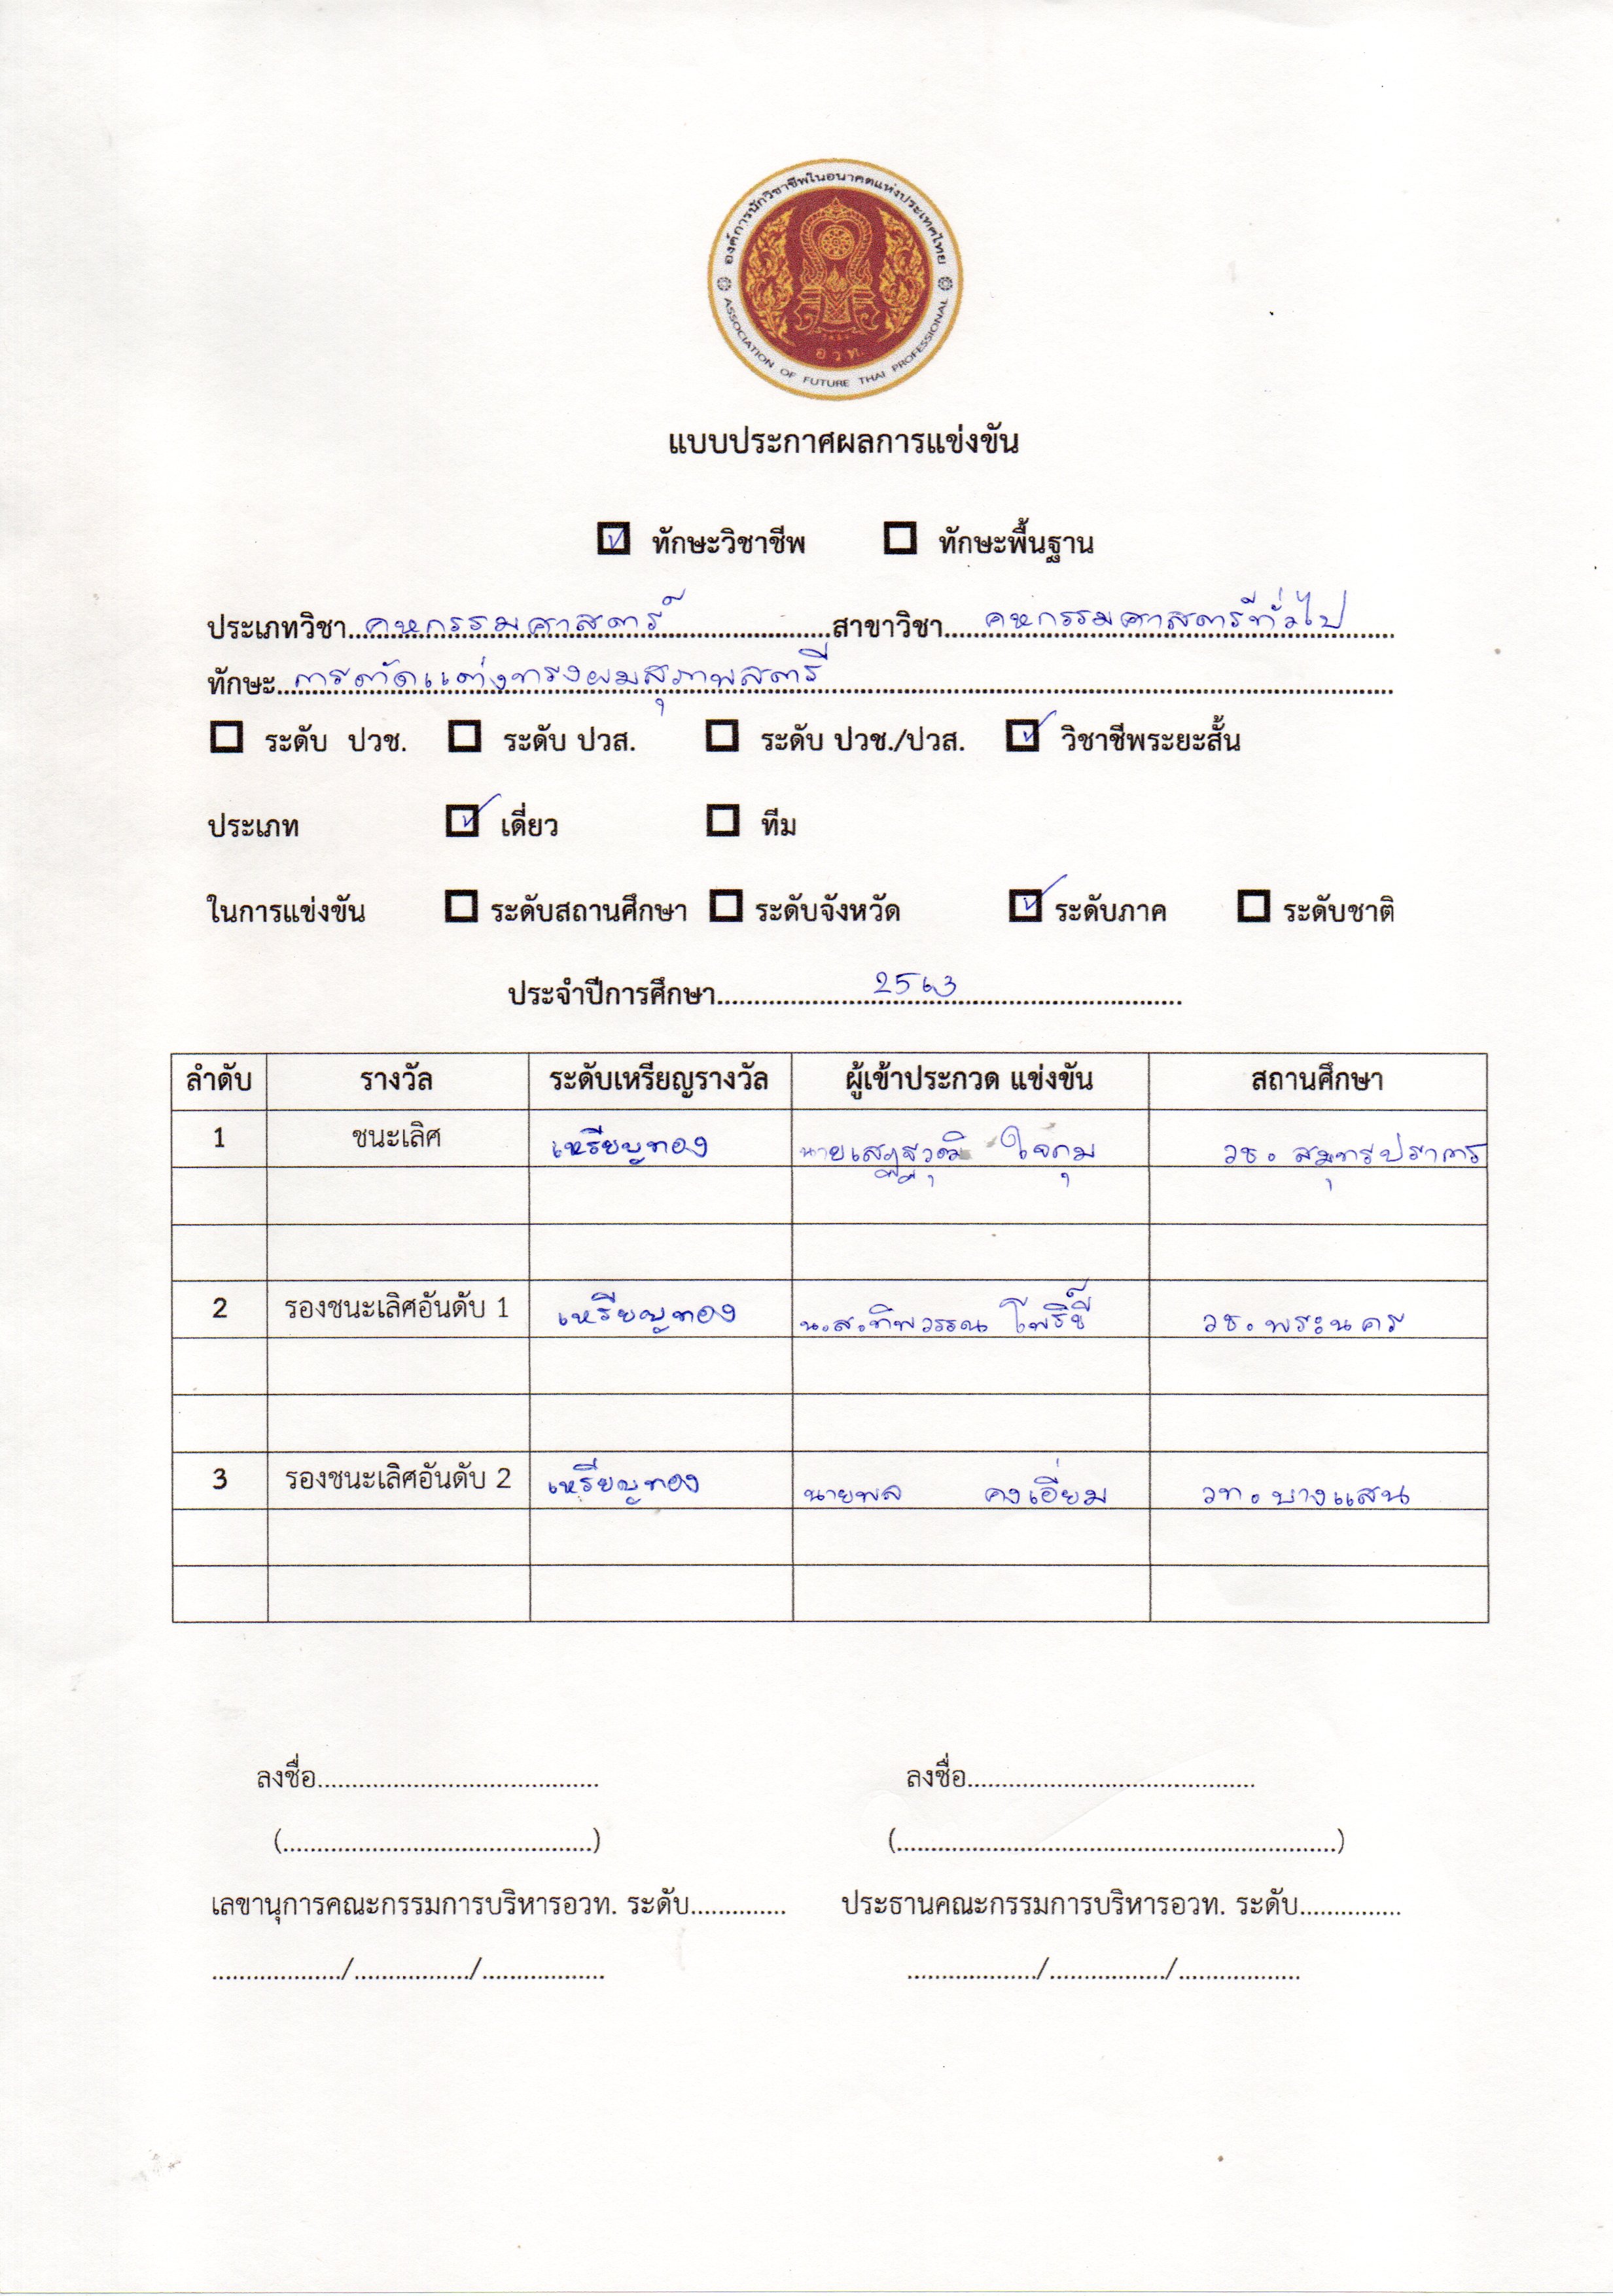 องค์การนักวิชาชีพในอนาคตแห่งประเทศไทย
อ ว ท.
ASSOCIATION OF FUTURE THAI PROFESSIONAL
แบบประกาศผลการแข่งขัน
☑ ทักษะวิชาชีพ ☐ ทักษะพื้นฐาน
ประเภทวิชา...คหกรรมศาสตร์...สาขาวิชา...คหกรรมศาสตร์ทั่วไป...
ทักษะ...การตัดแต่งทรงผมสุภาพสตรี...
☐ ระดับ ปวช. ☐ ระดับ ปวส. ☐ ระดับ ปวช./ปวส. ☑ วิชาชีพระยะสั้น
ประเภท ☑ เดี่ยว ☐ ทีม
ในการแข่งขัน ☐ ระดับสถานศึกษา ☐ ระดับจังหวัด ☑ ระดับภาค ☐ ระดับชาติ
ประจำปีการศึกษา...2563...
ลำดับ รางวัล ระดับเหรียญรางวัล ผู้เข้าประกวด แข่งขัน สถานศึกษา
1 ชนะเลิศ เหรียญทอง ใจคุม วช. สมุทรปราการ
2 รองชนะเลิศอันดับ 1 เหรียญทอง น.ส.ทิพวรรณ โพธิ์ชี วช. พระนคร
3 รองชนะเลิศอันดับ 2 เหรียญทอง นายพล คงเอี่ยม วท. บางแสน
ลงชื่อ........................................ ลงชื่อ........................................
(............................................) (..............................................................)
เลขานุการคณะกรรมการบริหารอวท. ระดับ.............. ประธานคณะกรรมการบริหารอวท. ระดับ...............
.................../................./.................. .................../................./..................